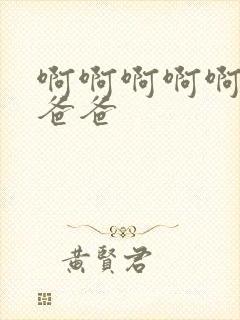 啊啊啊啊啊
爸爸
黄賢君